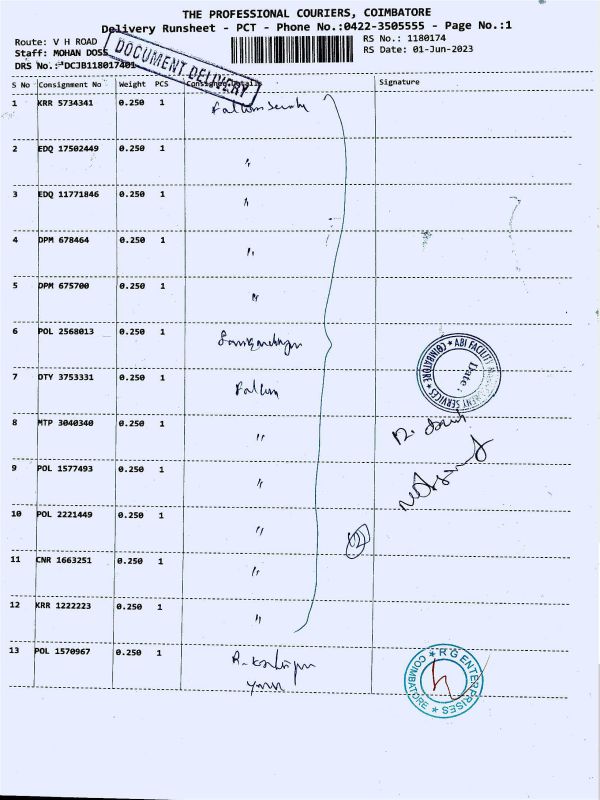 THE PROFESSIONAL COURIERS, COIMBATORE
Delivery Runsheet - PCT - Phone No.:0422-3505555 - Page No.:1
Route: V H ROAD
RS No.: 1180174
Staff: MOHAN DOSS
RS Date: 01-Jun-2023
DRS No.: DCJB118017401
DOCUMENT DELIVERY
S No Consignment No Weight PCS Signature
1 KRR 5734341 0.250 1
2 EDQ 17502449 0.250 1 "
3 EDQ 11771846 0.250 1 "
4 DPM 678464 0.250 1 "
5 DPM 675700 0.250 1 "
6 POL 2568013 0.250 1
7 DTY 3753331 0.250 1
ABI FACILITY SERVICES (COIMBATORE)
Date :
8 MTP 3040340 0.250 1 "
9 POL 1577493 0.250 1 "
10 POL 2221449 0.250 1 "
12
11 CNR 1663251 0.250 1 "
12 KRR 1222223 0.250 1 "
13 POL 1570967 0.250 1
R G ENTERPRISES
COIMBATORE